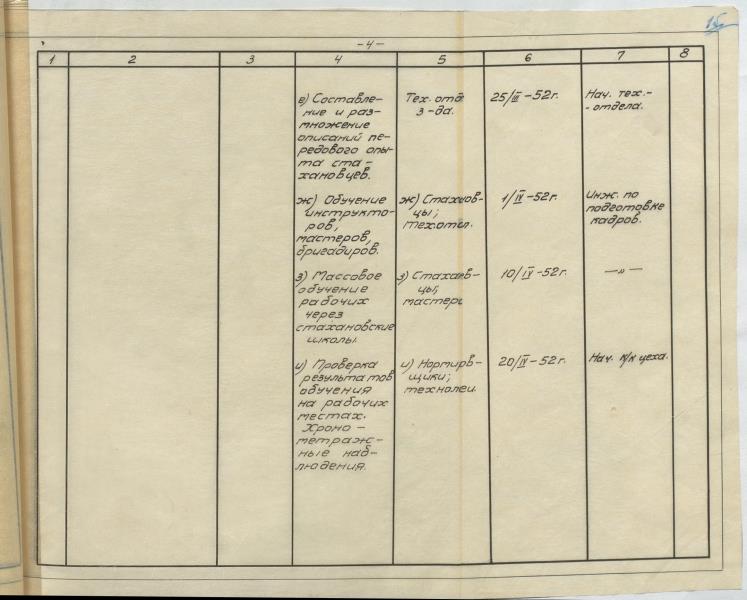 15
-4-
1 2 3 4 5 6 7 8
е) Составле-
ние и раз-
множение
описаний пе-
редового опы-
та ста-
хановцев.
Тех. отд.
з-да.
25/III-52г.
Нач. тех.-
-отдела.
ж) Обучение
инструкто-
ров,
мастеров,
бригадиров.
ж) Стаханов-
цы;
тех.отд.
1/IV-52г.
Инж. по
подготовке
кадров.
з) Массовое
обучение
рабочих
через
стахановские
школы.
з) Стаханов-
цы;
мастера
10/IV-52г.
—„—
и) Проверка
результатов
обучения
на рабочих
местах.
Хроно-
метраж-
ные наб-
людения.
и) Нормиров-
щики;
технологи.
20/IV-52г.
Нач. м/к цеха.